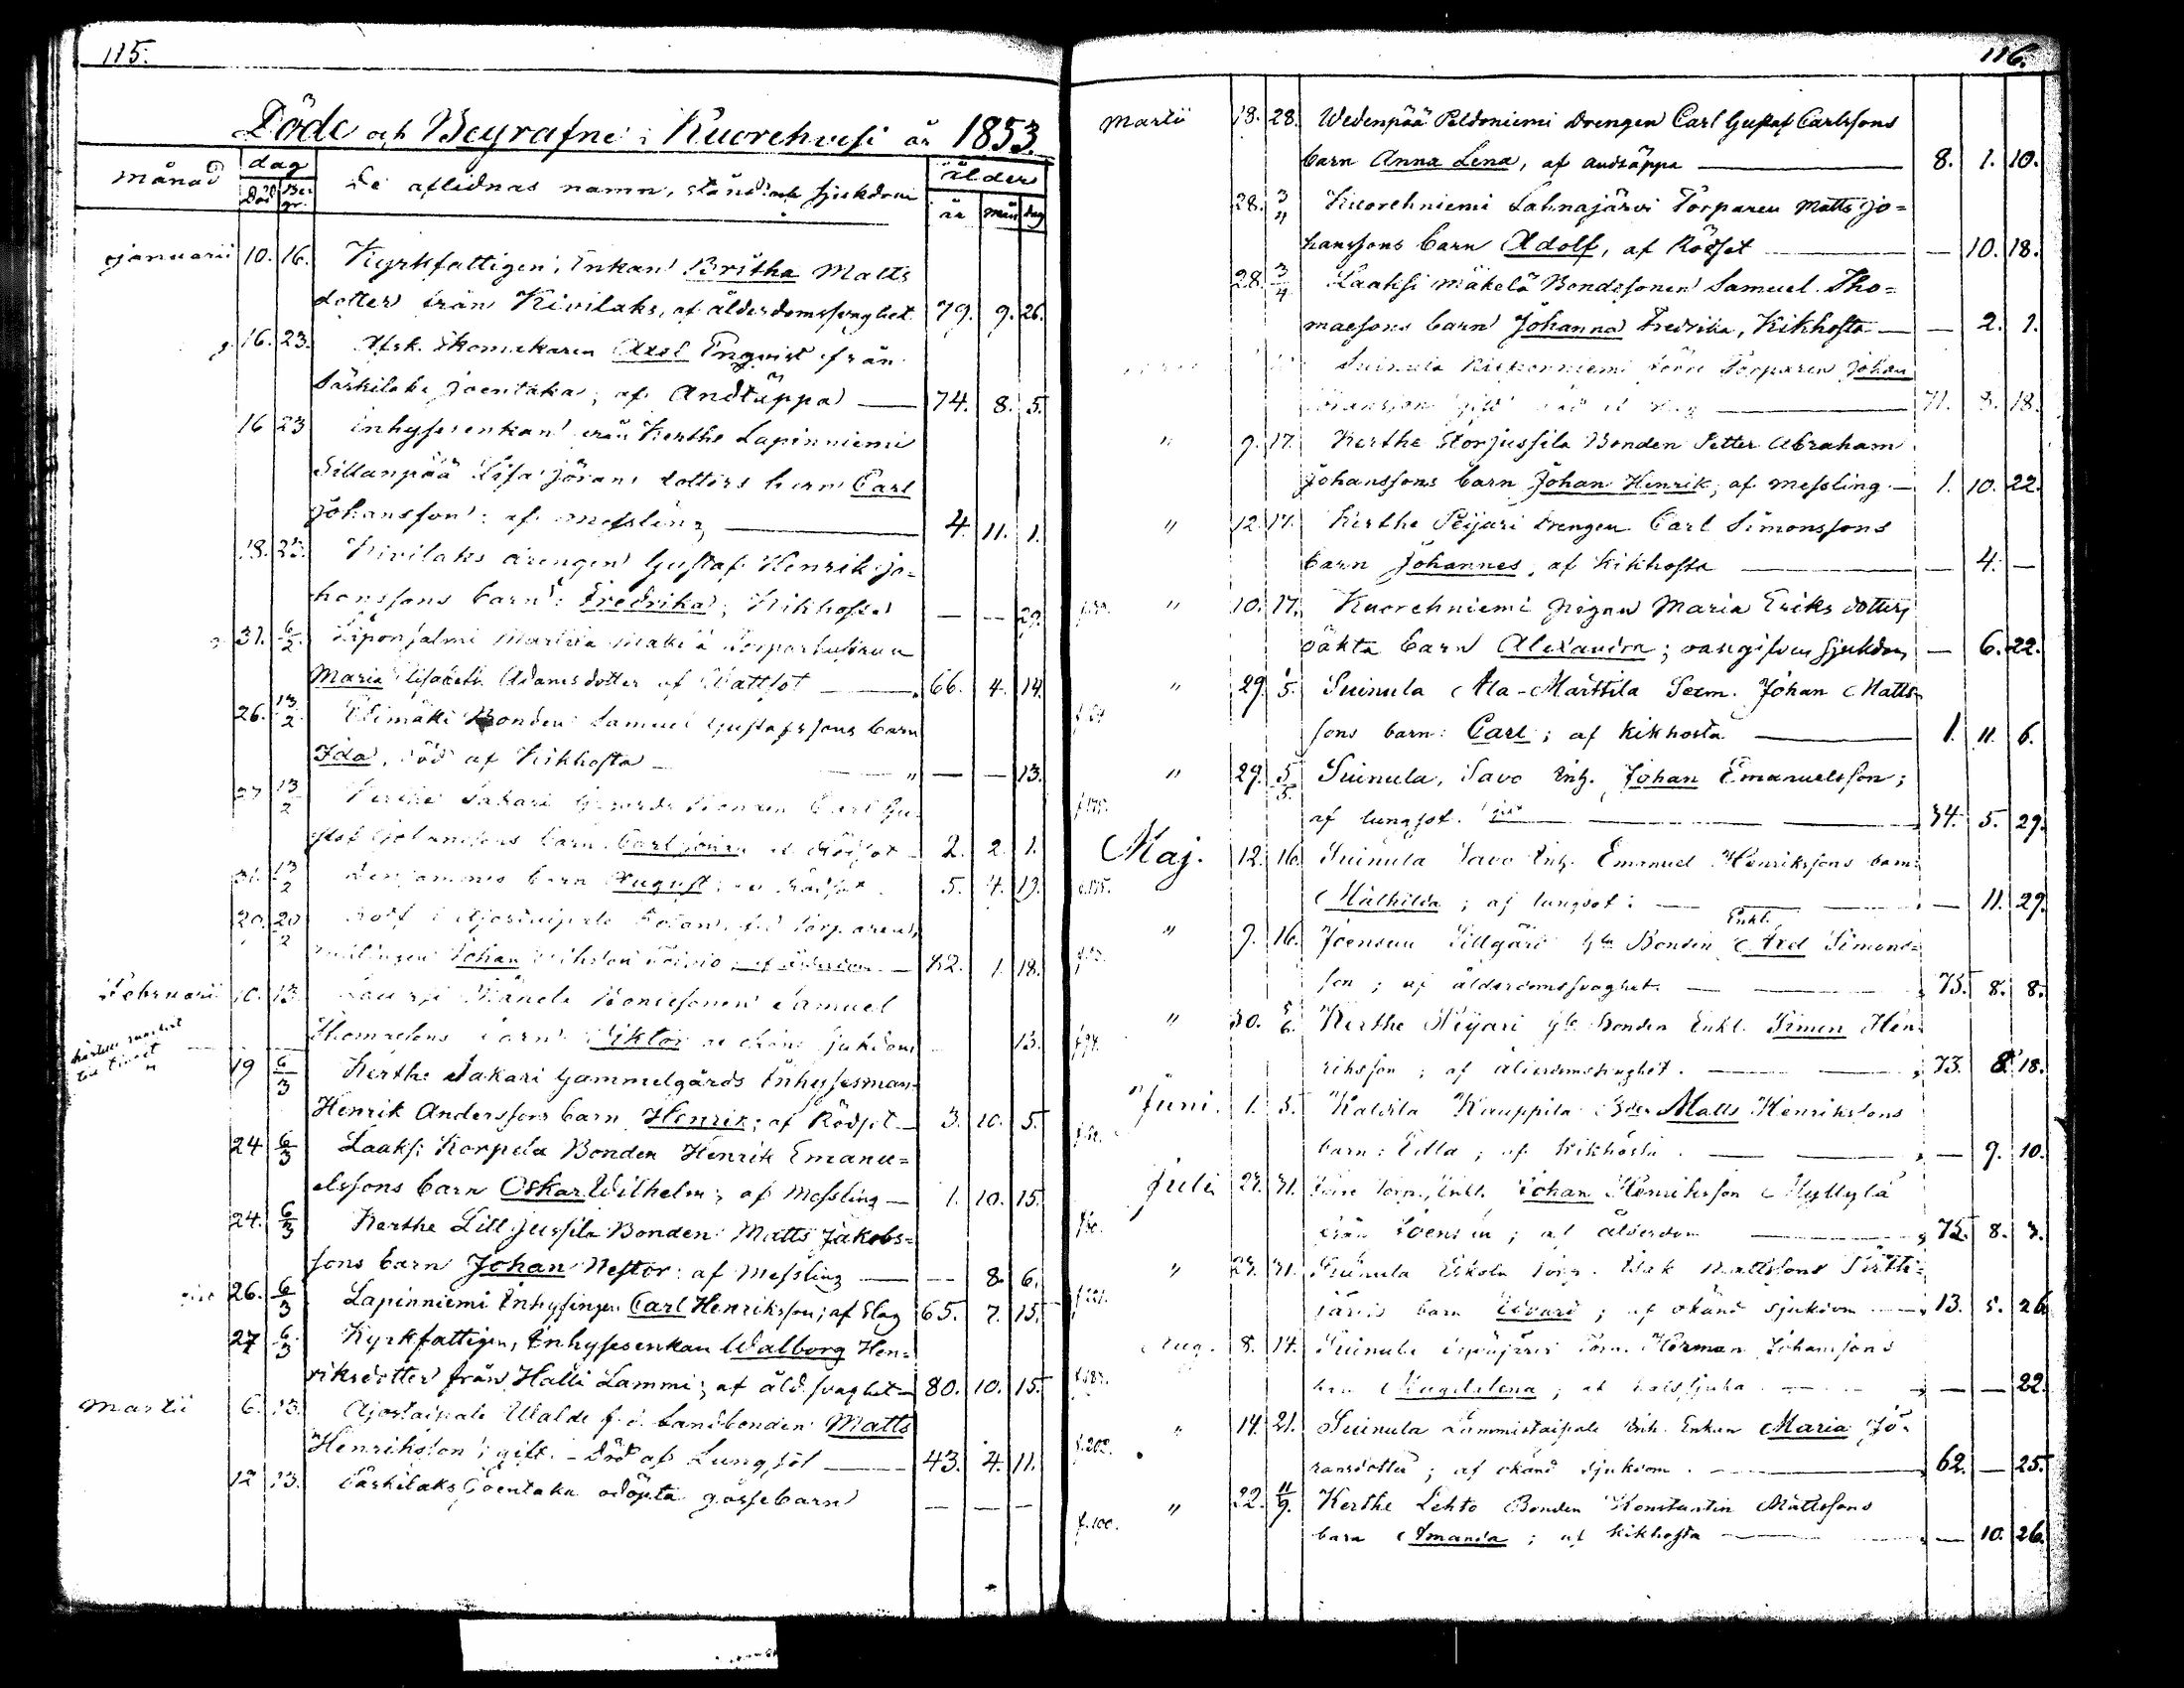 115.
Döde och Begrafne i Kuorehvesi år 1853.
månad dag De aflidnas namn, stånd och sjukdom ålder
Död Be gr. år mån dag
Januarii 10. 16. Kyrkfattigen, Enkan Britha Matts
dotter från Kivilaks, af ålderdomssvaghet 79. 9. 26.
16. 23. Afsk. Skomakaren Axel Enqvist från
Särkilaks Joentaka; af Andtäppa 74. 8. 5.
16 23 Inhysesenkan från Kerthe Lapinniemi
Sillanpää Lisa Jörans dotters barn Carl
Johansson: af messling 4. 11. 1.
18. 23. Kivilaks drengen Gustaf Henrik Jo=
hanssons barn: Fredrika; Kikhosta — — 29.
31. 6/2. Maria Lisabeth Adamsdotter af Wattsot 66. 4. 14.
26. 13/2. Bonden Samuel Gustafssons barn
Ida, död af Kikhosta — — 13.
27 13/2 Kerthe Sakari Carl Gu-
staf Johanssons barn Carl Johan af Rödsot 2. 2. 1.
31. 13/2 barn August; af Rödsot 5. 4. 19.
20. 20/2 Johan 82. 1. 18.
Februarii 10. 13. Bondesonen Samuel
Thomassons barn Viktor af okänd sjukdom 13.
19 6/3 Kerthe Sakari Gammelgårds Inhysesman
Henrik Anderssons barn Henrik; af Rödsot 3. 10. 5.
24 6/3 Laaksi Korpela Bonden Henrik Emanu=
elssons barn Oskar Wilhelm; af Messling 1. 10. 15.
24. 6/3 Kerthe Lill Jussila Bonden Matts Jakobs=
sons barn Johan Nestor: af Messling — 8. 6.
26. 6/3 Lapinniemi Inhysingen Carl Henriksson; af Slag 65. 7. 15.
27 6/3 Kyrkfattigen, Inhysesenkan Walborg Hen=
riksdotter från Halli Lammi; af åld. svaghet 80. 10. 15.
Martii 6. 13. Ajostaipale Ualde f.d. Landbonden Matts
Henriksson; gift. - Död af Lungsot 43. 4. 11.
12 13. Särkilaks Joentaka odöpta gossebarn — — —
116.
Martii 18. 28. Wedenpää Peldoniemi Drengen Carl Gustaf Carlssons
barn Anna Lena, af andtäppa 8. 1. 10.
28. 3/4 Kuorehniemi Lahnajärvi Torparen Matts Jo=
hanssons barn Adolf, af Rödsot — 10. 18.
28. 3/4 Laaksi Mäkelä Bondesonen Samuel Tho=
maesons barn Johanna Fredrika, Kikhosta — 2. 1.
Suinula Torparen Johan
71. 3. 18.
" 9. 17. Kerthe Storjussila Bonden Petter Abraham
Johanssons barn Johan Henrik; af messling 1. 10. 22.
" 12. 17. Kerthe Peijari drengen Carl Simonssons
barn Johannes, af Kikhosta — 4. —
" 10. 17. Kuorehniemi pigan Maria Eriks dotters
oäkta barn Alexandra; oangifven sjukdom — 6. 22.
" 29. 1/5. Suinula Ala-Marttila Sexm. Johan Matts-
sons barn: Carl; af kikhosta 1. 11. 6.
" 29. 5/5. Suinula, Savo Inh. Johan Emanuelsson;
af lungsot. gift 34. 5. 29.
Maj. 12. 16. Suinula Savo Inh. Emanuel Henrikssons barn:
Mathilda; af lungsot: — 11. 29.
" 9. 16. Joensuu Lillgård Gle Bonden Enkl. Axel Simons=
son; af ålderdomssvaghet. 75. 8. 8.
" 30. 5/6. Kerthe Peijari gle Bonden Enkl. Simon Hen-
riksson; af ålderdomssvaghet. 73. 8. 18.
Juni. 1. 5. Kaivila Kauppila Bden Matts Henrikssons
barn: Edla; af Kikhosta. — 9. 10.
Juli 27. 31. Förre Torp., Enkl. Johan Henriksson Myllylä
från Joensuu; af ålderdom 75. 8. 3.
" 23. 31. Suinula Eskola Torp. Isak Mattssons Pirtti=
järvis barn Edvard; af okänd sjukdom 13. 5. 26
Aug. 8. 14. Suinula Torp. Herman Johanssons
barn Magdalena; af halssjuka — — 22.
" 14. 21. Suinula Lammistaipale Inh. Enkan Maria Jö-
ransdotter; af okänd sjukdom. 62. — 25.
f. 100. " 22. 11/9. Kerthe Lehto Bonden Konstantin Mattssons
barn Amanda; af kikhosta — 10. 26.